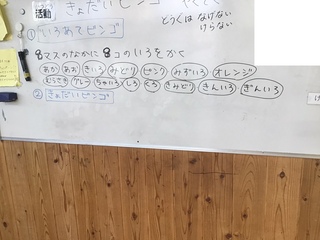 活動 きょだいビンゴ
どうぐは なげない
けらない
① いろあてビンゴ
8マスのなかに 8コのいろをかく
あか あお きいろ みどり ピンク みずいろ オレンジ
むらさき グレー ちゃいろ しろ くろ きみどり きんいろ ぎんいろ
② きょだいビンゴ